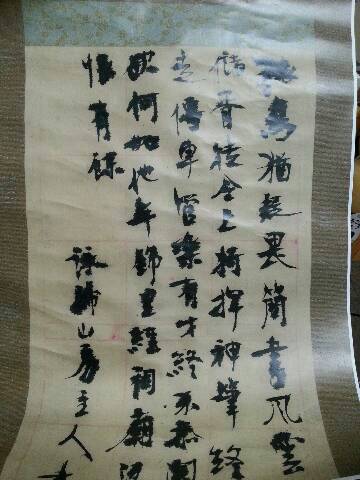 猿鳥猶疑畏簡書風雲
儲胥徒令上將揮神筆終
走傳車管樂有才終不忝關
欲何如他年錦里經祠廟
恨有餘
山房主人